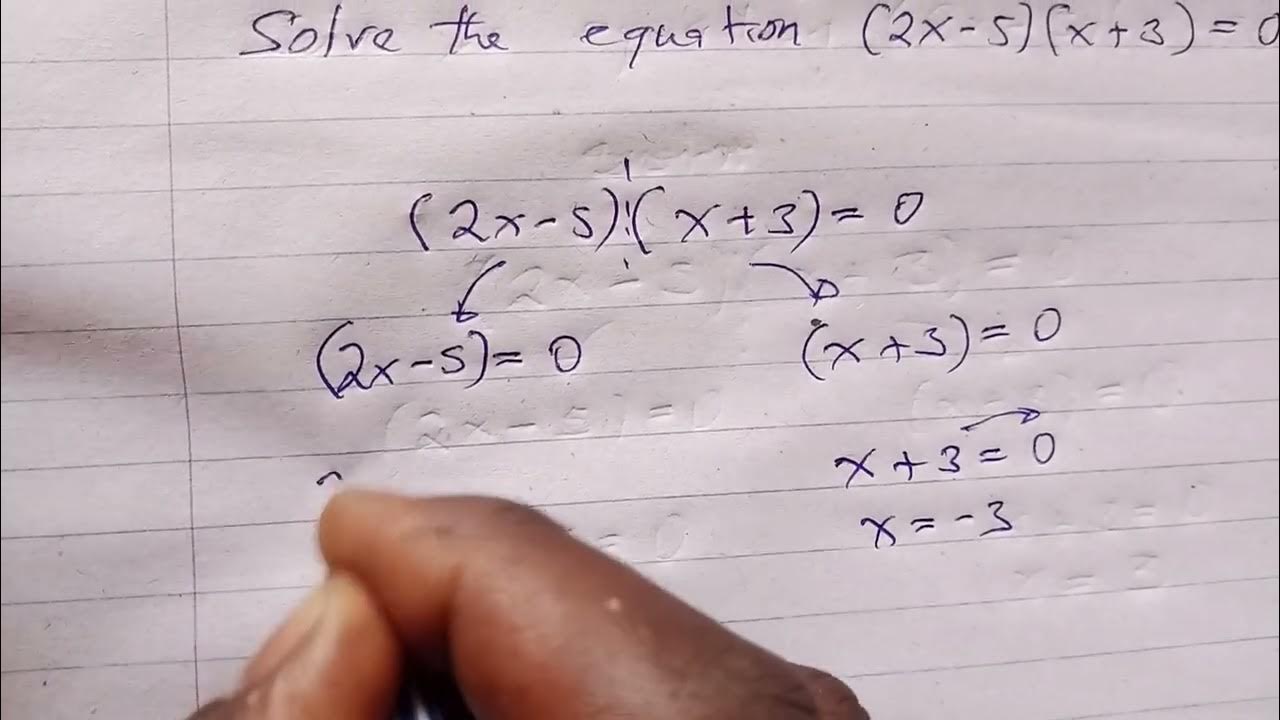 Solve the equation (2x-5)(x+3)=0
(2x-5)(x+3)=0
(2x-5)=0
(x+3)=0
x+3=0
x=-3